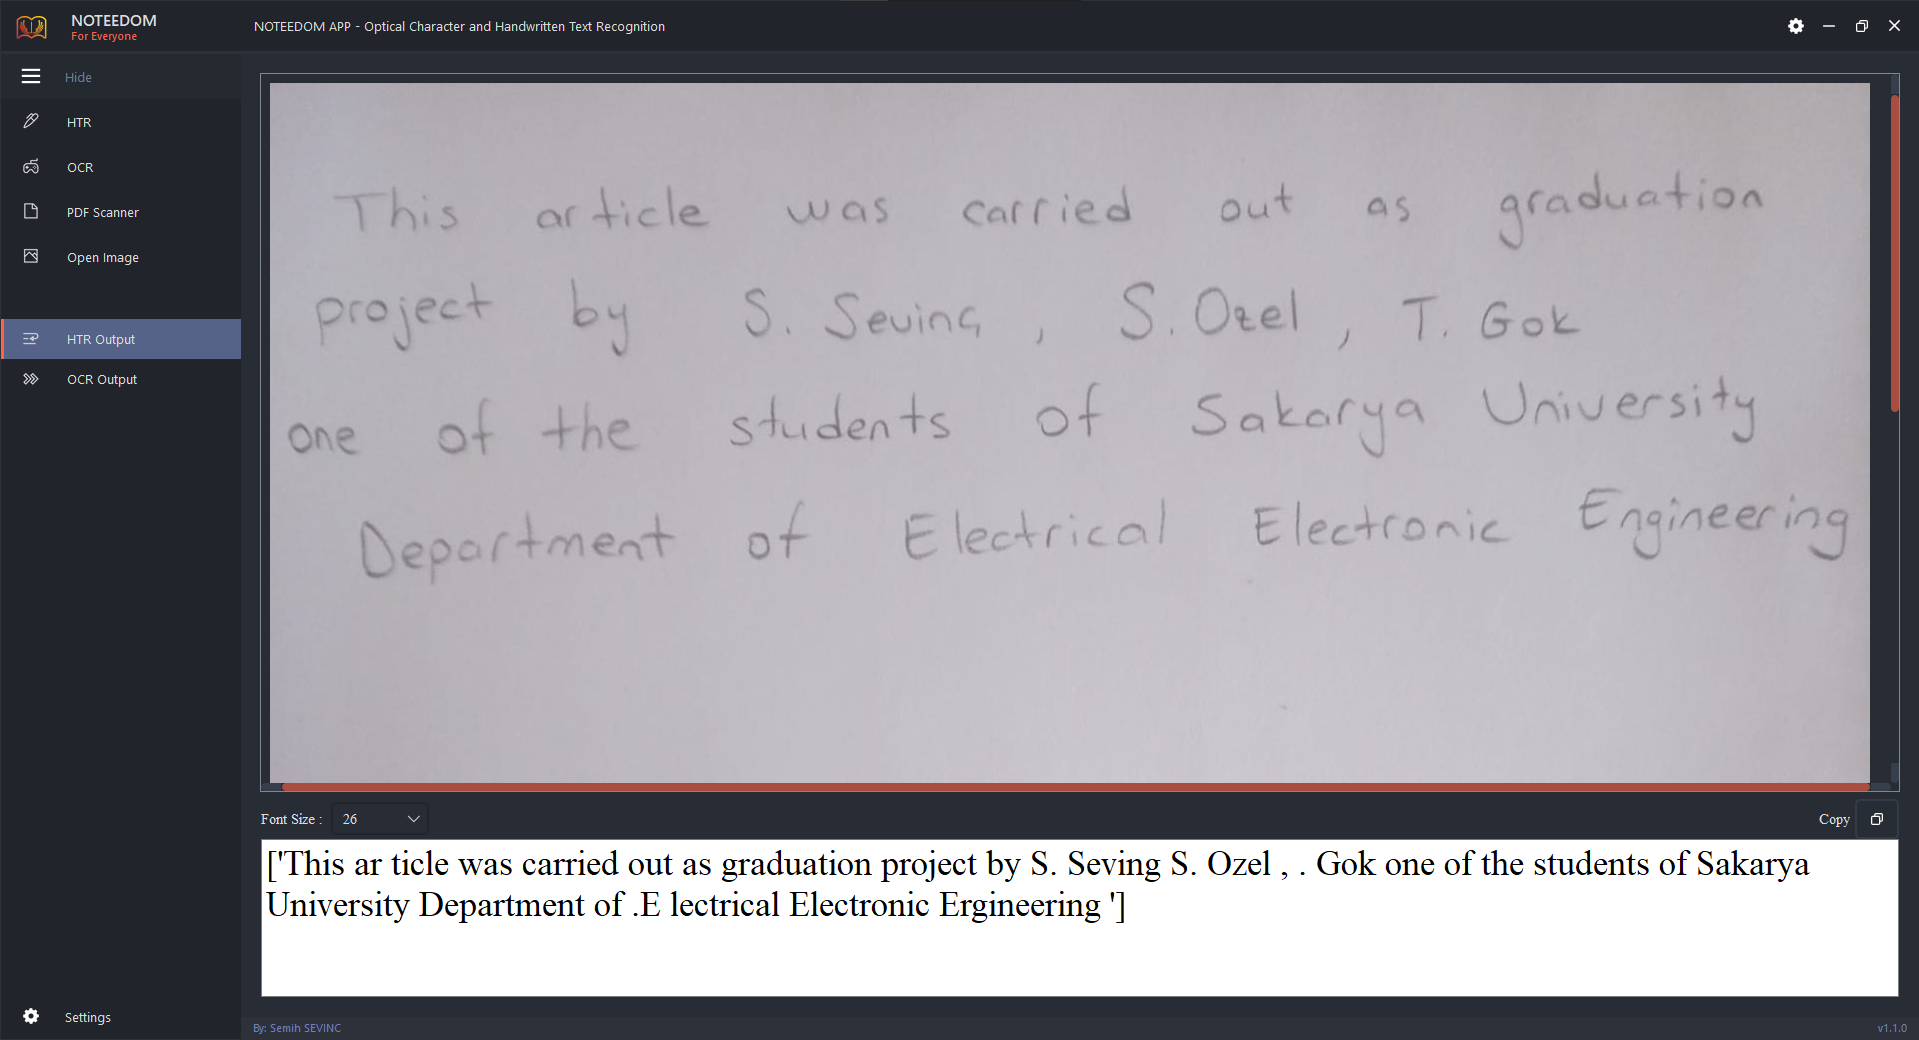 NOTEEDOM
For Everyone
NOTEEDOM APP - Optical Character and Handwritten Text Recognition
Hide
HTR
OCR
PDF Scanner
Open Image
HTR Output
OCR Output
Settings
This article was carried out as graduation
project by S. Sevinç , S. Ozel , T. Gok
one of the students of Sakarya University
Department of Electrical Electronic Engineering
Font Size : 26
Copy
['This ar ticle was carried out as graduation project by S. Seving S. Ozel , . Gok one of the students of Sakarya
University Department of .E lectrical Electronic Ergineering ']
By: Semih SEVINC
v1.1.0